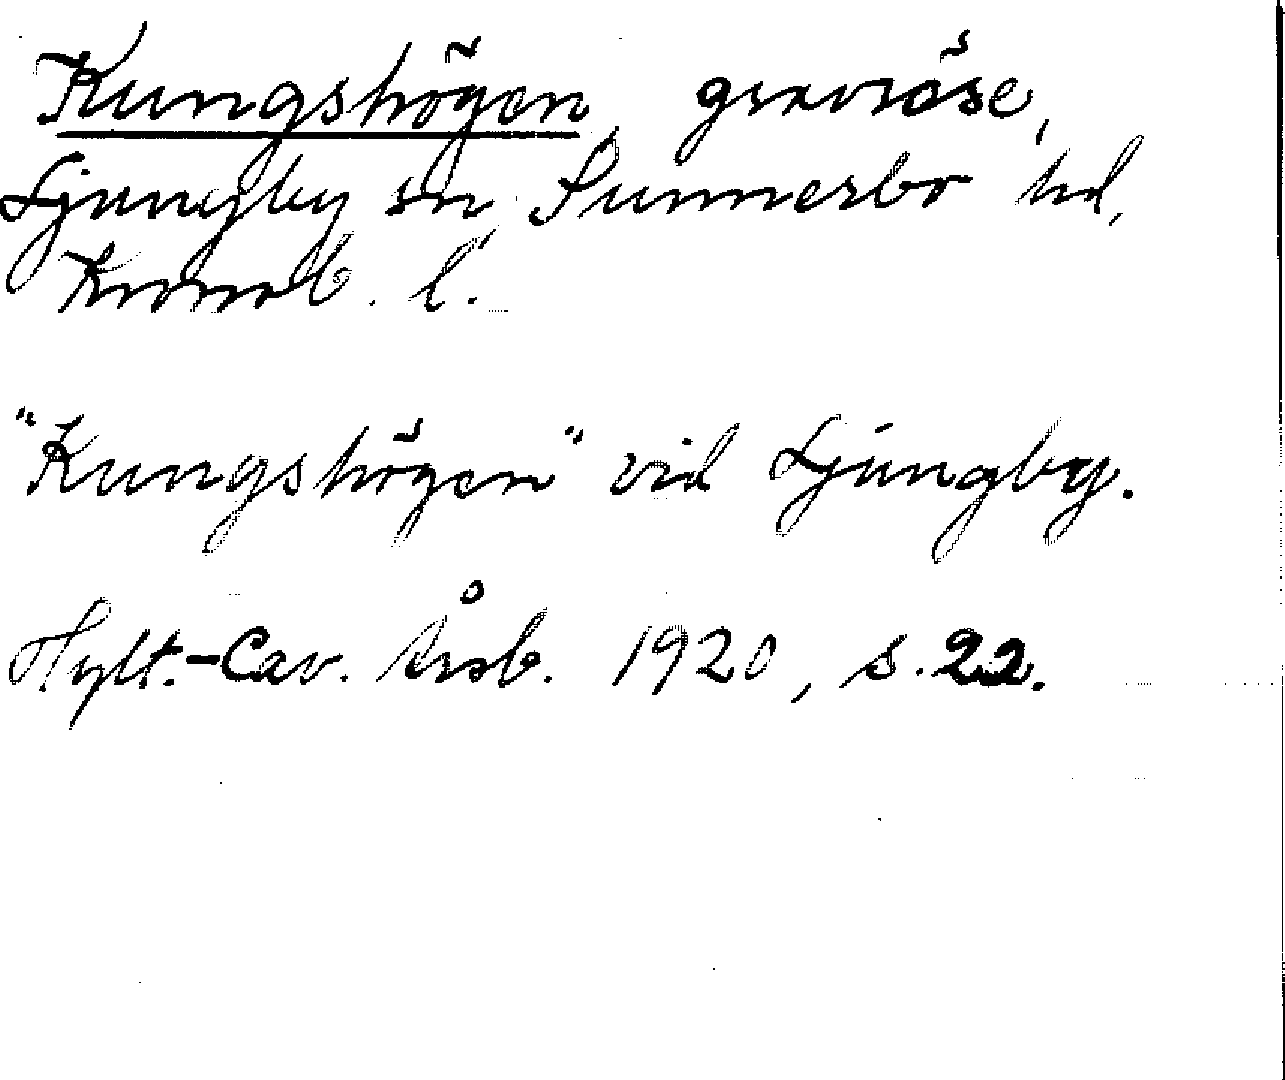 Kungshögen, gravröse,
Ljungby sn, Sunnerbo hd,
Kronob. l.
"Kungshögen" vid Ljungby.
Hylt.-Cav. Årsb. 1920, s. 22.